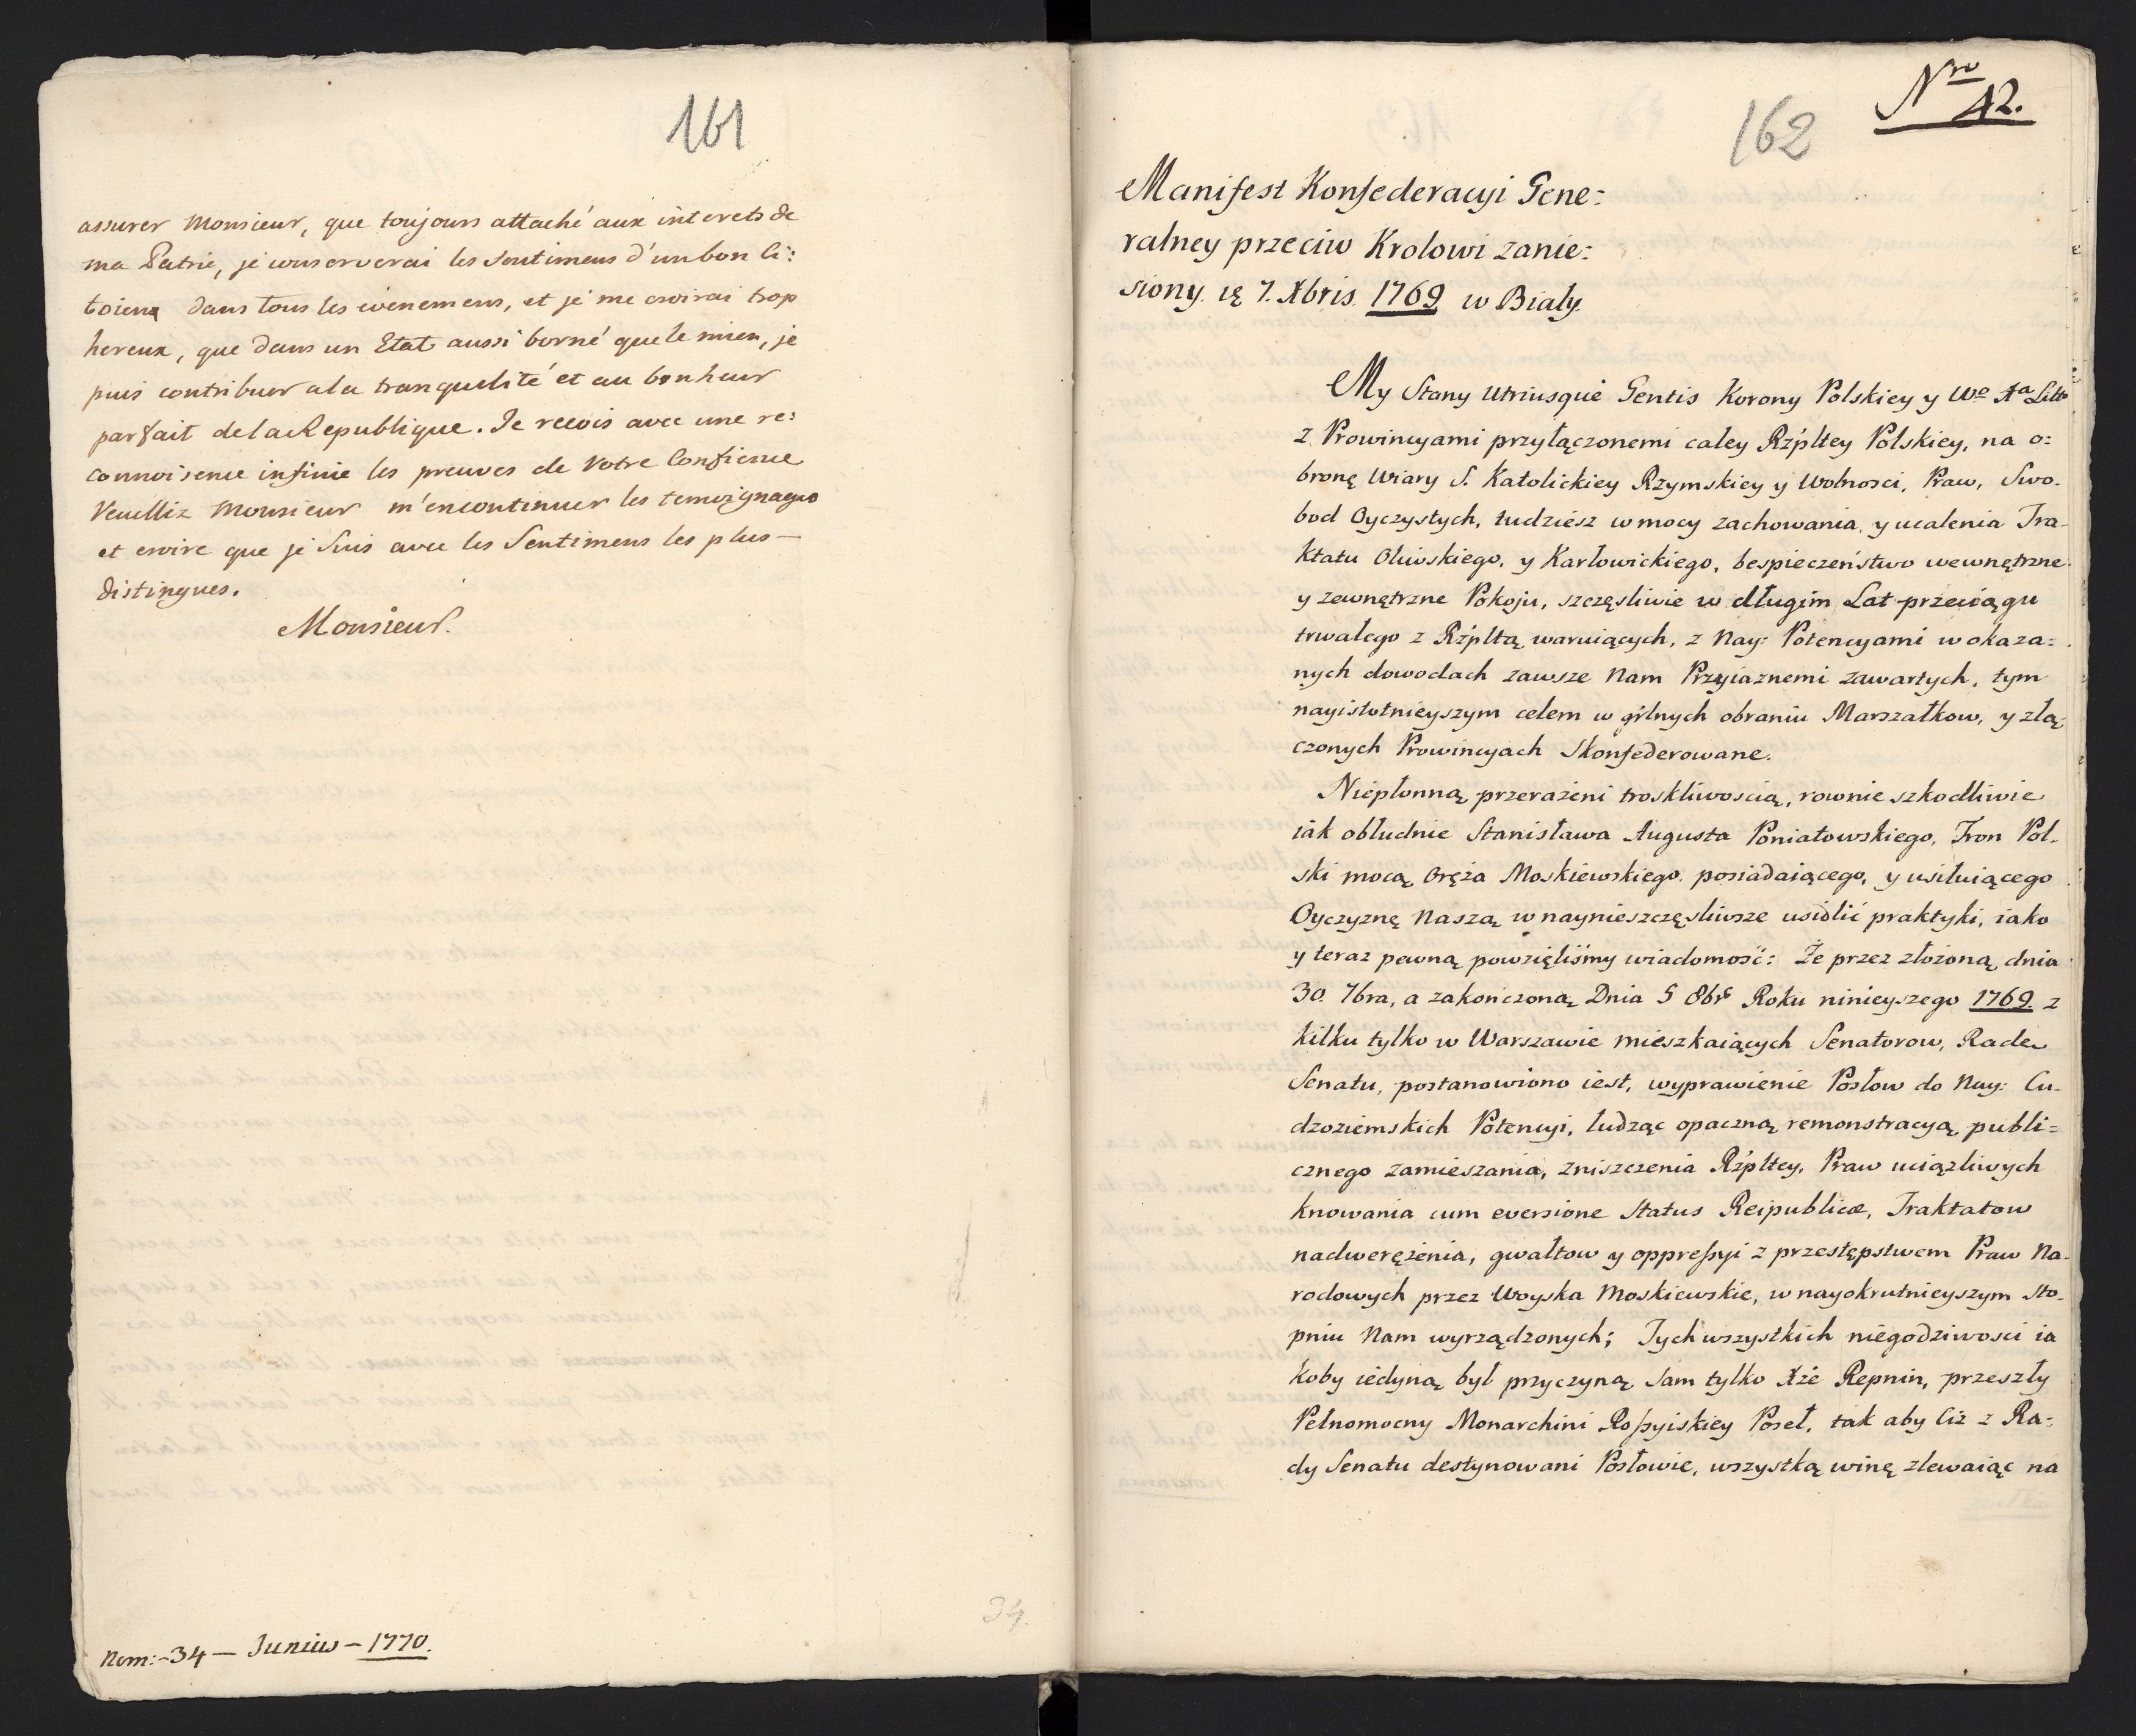 161
assurer Monsieur, que toujours attaché aux interets de
ma Patrie, je conserverai les Sentimens d'un bon Ci:
toiens dans tous les evenemens, et je me croirai trop
hereux, que dans un Etat aussi borné que le mien, je
puis contribuer a la tranquilité et au bonheur
parfait de la Republique. Je recois avec une re:
connoisence infinie les preuves de Votre Confience
Veuilliz Monsieur m'en continuer les temoignages
et croire que je Suis avec les Sentimens les plus —
distingues.
Monsieur.
34.
Nem:-34 — Junius — 1770.
Nro 42.
162
Manifest Konfederacyi Gene:
ralney przeciw Krolowi zanie:
siony. 7. Xbris. 1769 w Biały.
My Stany Utriusque Gentis Korony Polskiey y Wo Xa Litt
z Prowincyami przyłączonemi całey Rzpltey Polskiey, na o:
bronę Wiary S. Katolickiey Rzymskiey y Wolnosci, Praw, Swo-
bod Oyczystych, tudziesz w mocy zachowania y ucalenia Tra-
ktatu Oliwskiego, y Karłowickiego, bespieczeństwo wewnętrzne
y zewnętrzne Pokoju, szczęsliwie w długim Lat przeciągu
trwałego z Rzpltą waruiących, z Nay: Potencyami w okaza:
nych dowodach zawsze Nam Przyiaznemi zawartych, tym
nayistotnieyszym celem w grlnych obraniu Marszałkow, y złą-
czonych Prowincyach Skonfederowane.
Niepłonną przerażeni troskliwoscią, rownie szkodliwie
iak obłudnie Stanisława Augusta Poniatowskiego, Tron Pol-
ski mocą Oręża Moskiewskiego posiadaiącego, y usiłuiącego
Oyczyznę Naszą w naynieszczęsliwsze usidlić praktyki, iako
y teraz pewną powzięliśmy wiadomość: Że przez złożoną dnia
30. 7bra, a zakończoną Dnia 5 8br Roku ninieyszego 1769. z
kilku tylko w Warszawie mieszkaiących Senatorow, Radę
Senatu, postanowiono iest, wyprawienie Posłow do Nay: Cu-
dzoziemskich Potencyi, łudząc opaczną remonstracyą publi=
cznego zamieszania, zniszczenia Rzpltey, Praw uciązliwych
knowania cum eversione Status Reipublicæ, Traktatow
nadwerężenia, gwałtow y oppressyi z przestępstwem Praw Na-
rodowych przez Woyska Moskiewskie, w nayokrutnieyszym sto-
pniu Nam wyrządzonych; Tych wszystkich niegodziwosci ia
koby iedyną był przyczyną sam tylko Xże Repnin, przeszły
Pełnomocny Monarchini Rossyiskiey Poseł, tak aby Ciż z Ra=
dy Senatu destynowani Posłowie, wszystką winę zlewaiąc na